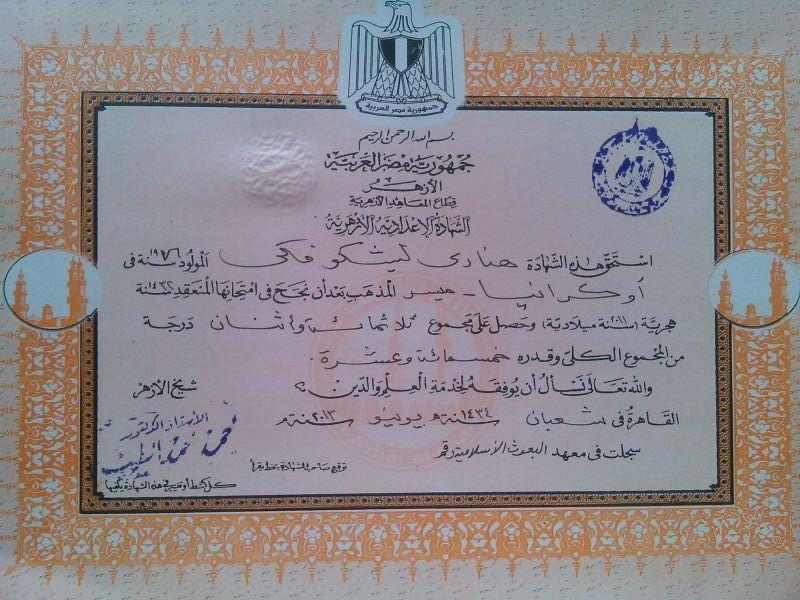 جمهورية مصر العربية
بسم الله الرحمن الرحيم
جمهورية مصر العربية
الأزهر
قطاع المعاهد الأزهرية
الشهادة الإعدادية الأزهرية
استحق هذه الشهادة هنادى ليشكو فكى المولود سنة ١٩٧٦ فى
أوكرانيا - ميسر المذهب بعد أن نجح فى امتحانها المنعقد سنة ١٤٣٢
هجرية (سنة ٢٠١١ ميلادية) وحصل على مجموع ثلاثمائة وأثنان درجة
من المجموع الكلى وقدره خمسمائة وعشرة.
والله تعالى نسأل أن يوفقه لخدمة العلم والدين
شيخ الأزهر
القاهرة فى شعبان سنة ١٤٣٤ هـ يونيو سنة ٢٠١٣ م
الأستاذ الدكتور
سجلت فى معهد البعوث الأسلامية رقم
توقيع صاحب الشهادة بخط يقرأ
كل كشط أو تغيير فى هذه الشهادة يلغيها